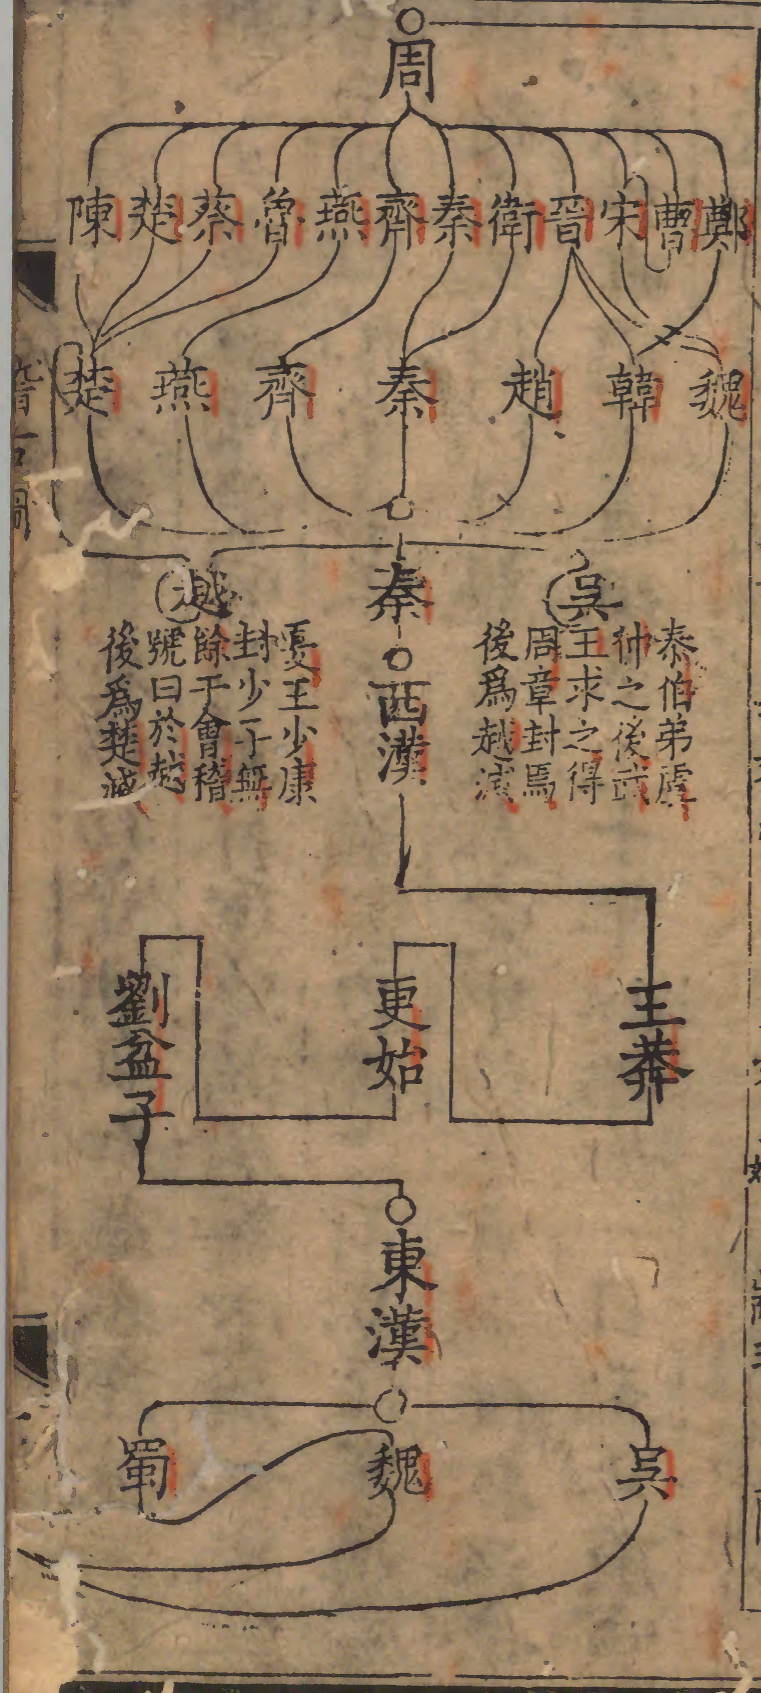 周
鄭曹宋晉衛秦齊燕魯蔡楚陳
魏韓趙秦齊燕楚
秦
吳
泰伯弟虞
仲之後武
王求之得
周章封焉
後爲越滅
越
夏王少康
封少子無
餘于會稽
號曰於越
後爲楚滅
西漢
王莽
更始
劉盆子
東漢
吳
魏
蜀